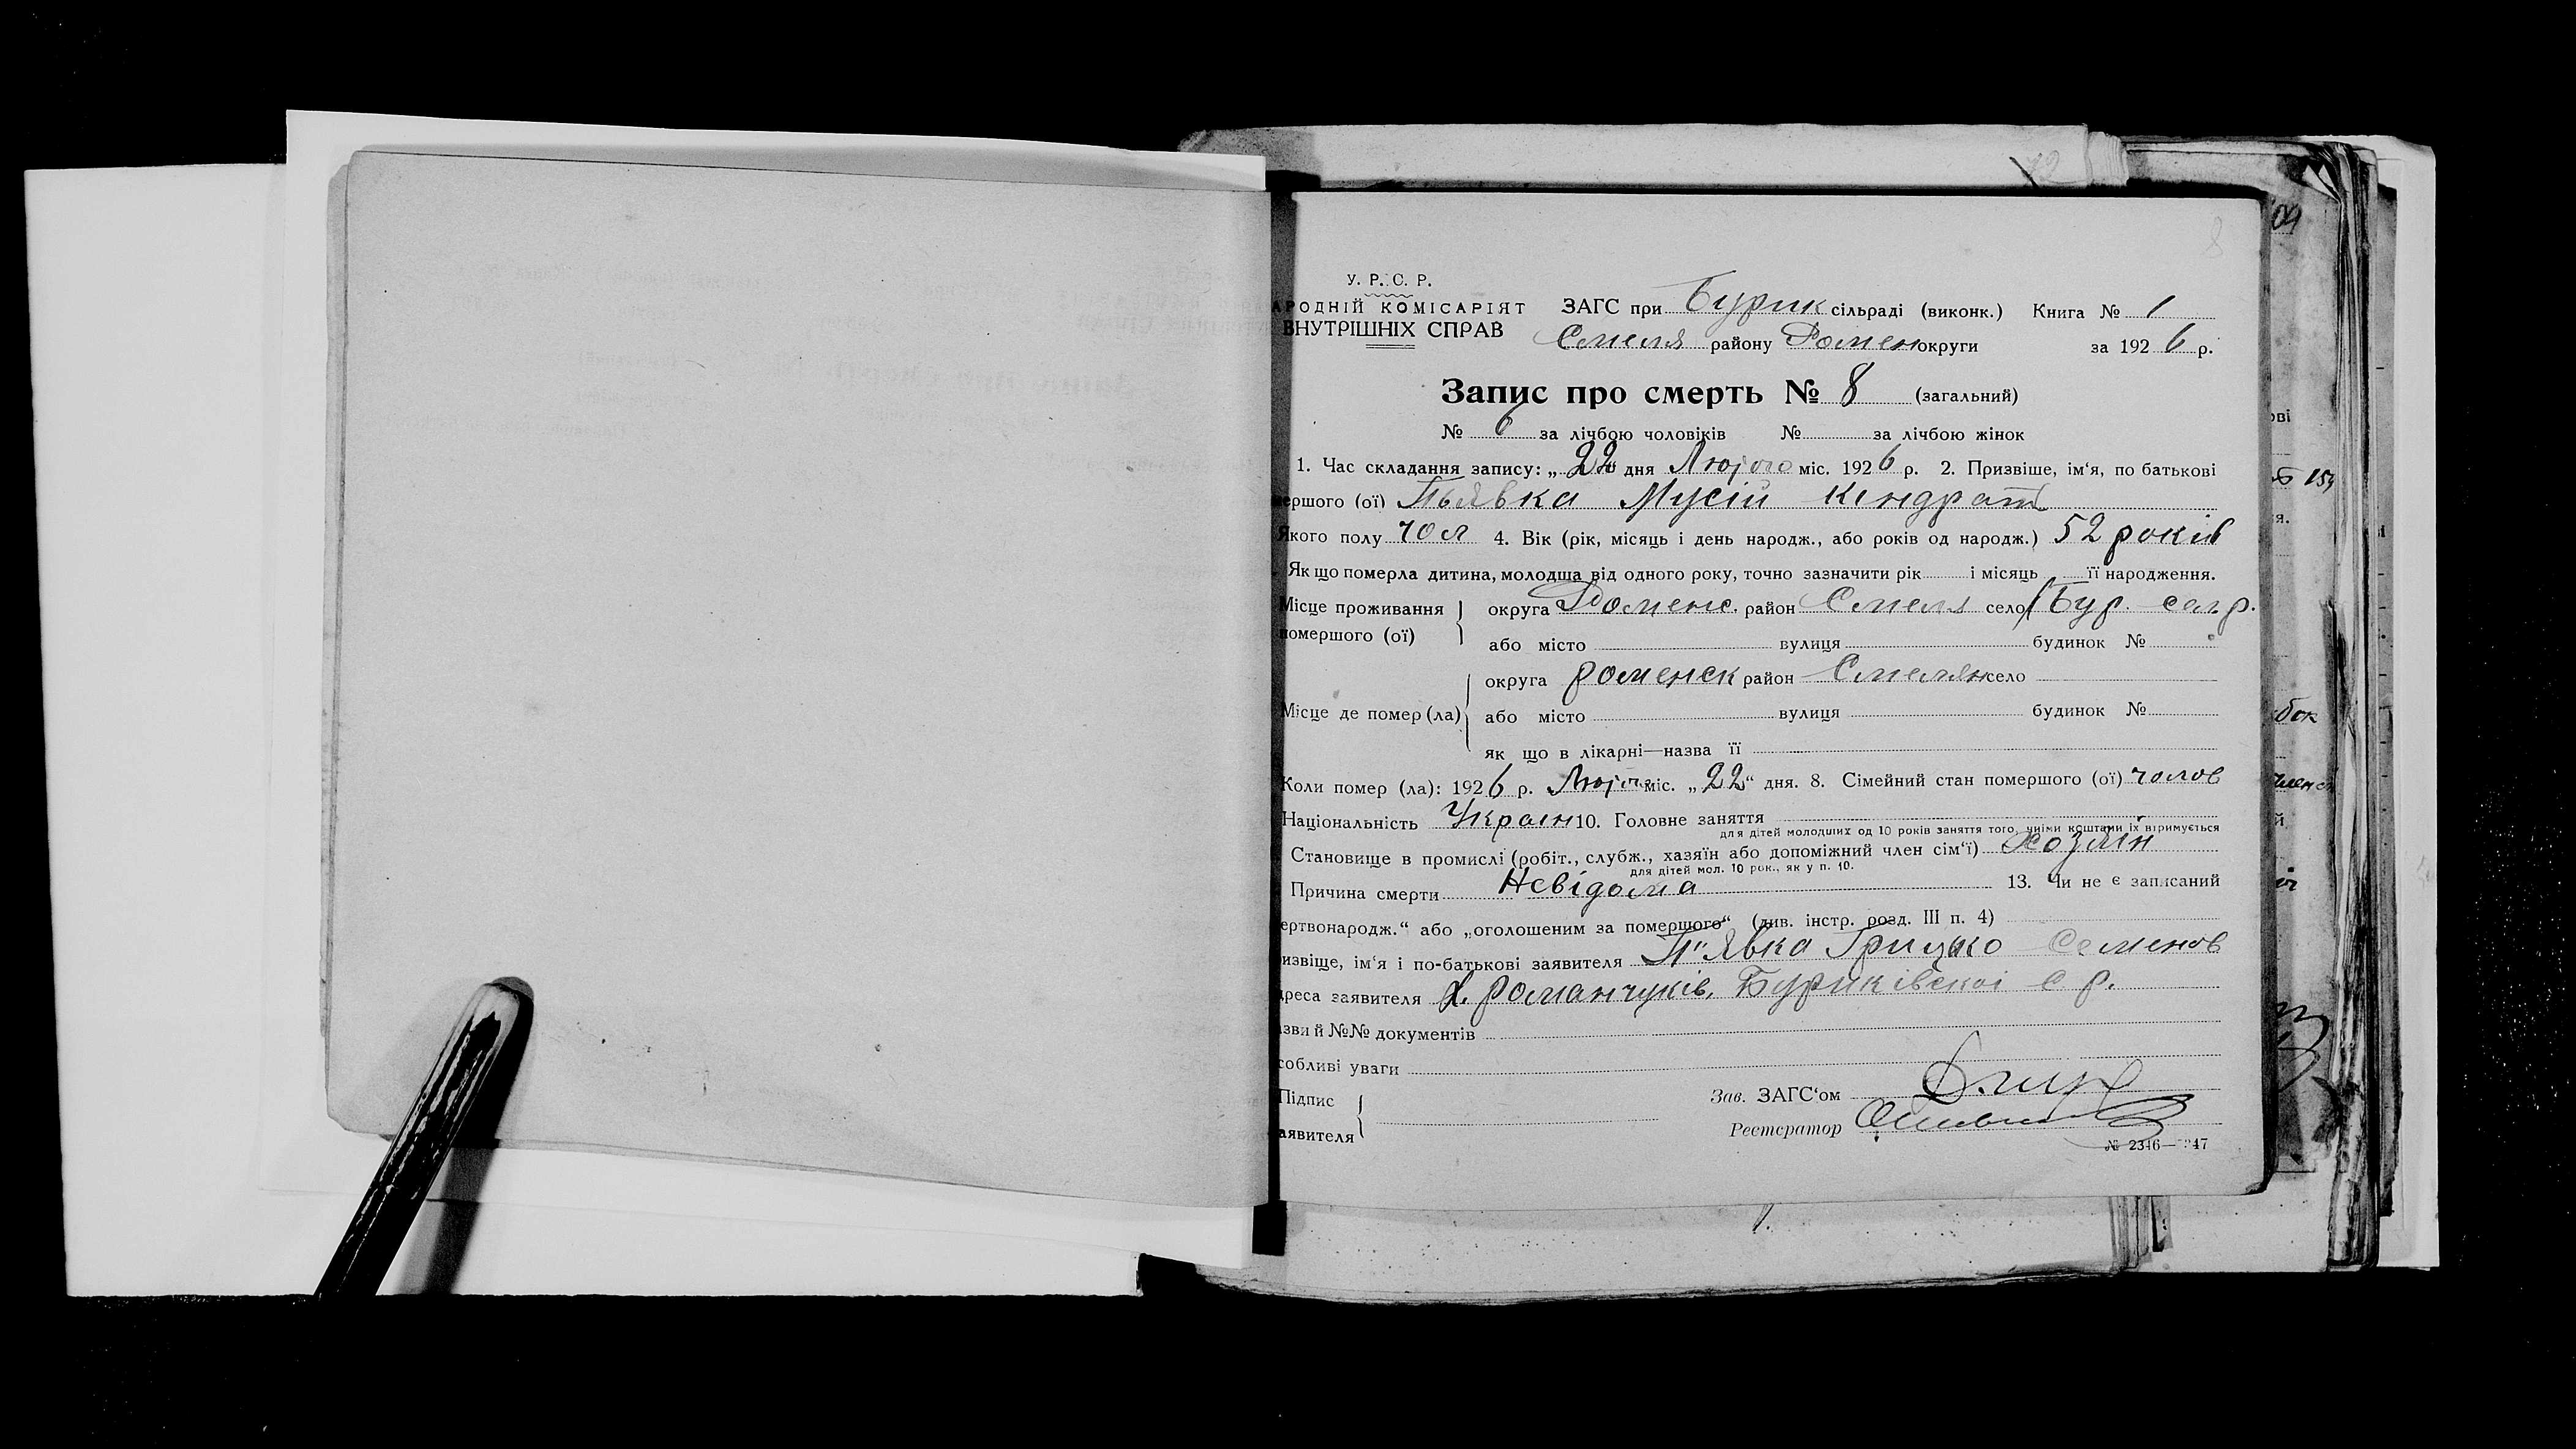 8
У. Р. С. Р.
АРОДНІЙ КОМІСАРІЯТ ЗАГС при Бурик сільраді (виконк.) Книга № 1
ВНУТРІШНІХ СПРАВ Смеля району Ромен округи за 1926 р.
Запис про смерть № 8 (загальний)
№ 6 за лічбою чоловіків № за лічбою жінок
1. Час складання запису: „22“ дня Лютого міс. 1926 р. 2. Призвіше, ім‘я, по батькові
ершого (ої) Пьявка Мусій Кіндрат
Якого полу чол 4. Вік (рік, місяць і день народж., або років од народж.) 52 років
Як що померла дитина, молодша від одного року, точно зазначити рік і місяць її народження.
Місце проживання округа Роменс. район Смеля село Бур. сел.р.
помершого (ої) або місто вулиця будинок №
округа Роменск район Смелян село
Місце де помер (ла) або місто вулиця будинок №
як що в лікарні—назва її
Коли помер (ла): 1926 р. Лютого міс. „22“ дня. 8. Сімейний стан помершого (ої) чолов
Національність Україн 10. Головне заняття
для дітей молодших од 10 років заняття того, чиїми коштами їх втримується
Становище в промислі (робіт., службж., хазяїн або допоміжний член сім‘ї) Хозяїн
для дітей мол. 10 рок., як у п. 10.
Причина смерти Невідома 13. Чи не є записаний
ертвонародж.“ або „оголошеним за помершого“ (див. інстр. розд. III п. 4)
извіще, ім‘я і по-батькові заявителя П"явка Грицько Семенов
дреса заявителя х. Романчуків, Буриківскої с р.
зви й №№ документів
собливі уваги
Підпис Зав. ЗАГС‘ом
аявителя Реєстратор
№ 2346—